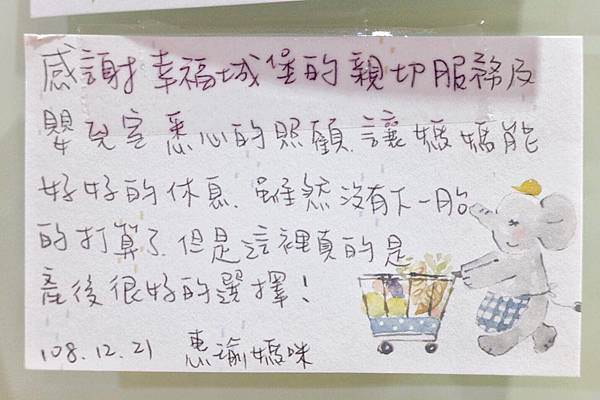 感謝幸福城堡的親切服務及
嬰兒室悉心的照顧.讓媽媽能
好好的休息.雖然沒有下一胎
的打算了.但是這裡真的是
產後很好的選擇!
108.12.21 惠瑜媽咪